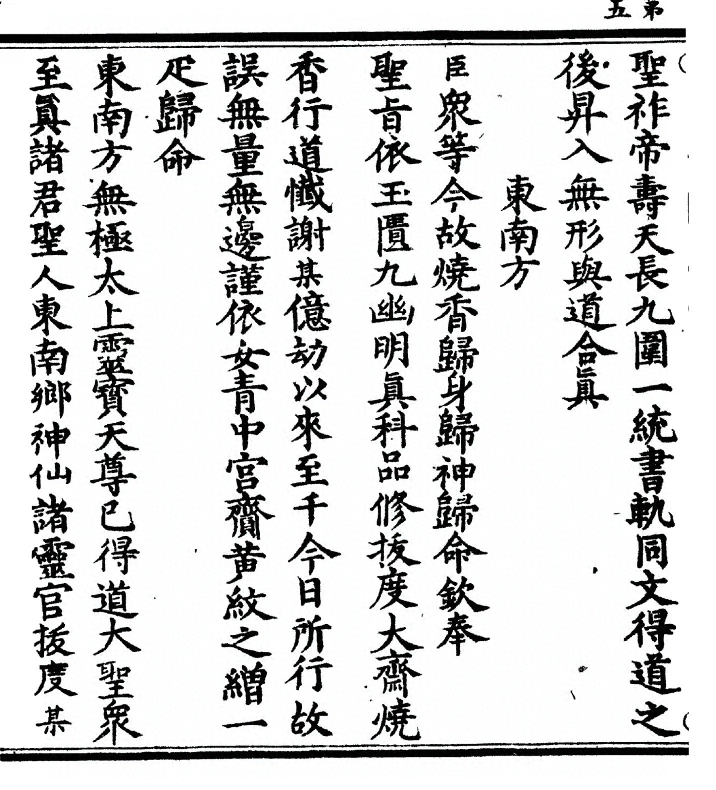 第五
聖祚帝壽天長九圍一統書軌同文得道之
後昇入無形與道合眞
東南方
臣衆等今故燒香歸身歸神歸命欽奉
聖旨依玉匱九幽明眞科品修拔度大齋燒
香行道懺謝某億劫以來至千今日所行故
誤無量無邊謹依女青中宮齎黄紋之繒一
疋歸命
東南方無極太上靈寶天尊已得道大聖衆
至眞諸君聖人東南鄉神仙諸靈官拔度某